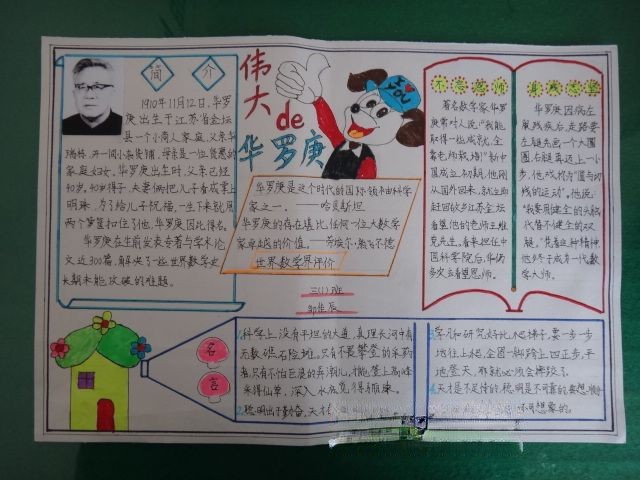 简 介
1910年11月12日,华罗
庚出生于江苏省金坛
县一个小商人家庭,父亲华
瑞栋,开一间小杂货铺,母亲是一位贤惠的
家庭妇女。华罗庚出生时,父亲已经
40岁,40岁得子,夫妻俩把儿子看成掌上
明珠,为了给儿子祝福,一生下来就用
两个箩筐扣住了他,华罗庚因此得名。
华罗庚在生前发表专著与学术论
文近300篇,解决了一些世界数学史
长期未能攻破的难题。
伟大de华罗庚
I YOU
华罗庚是这个时代的国际领袖科学
家之一。——哈贝斯坦
华罗庚的存在堪比任何一位大数学
家卓越的价值。——劳埃尔·熊飞尔德
世界数学界评价
三(1)班
邹佳辰
不忘恩师
著名数学家华罗
庚常对人说:"我能
取得一些成就,全
靠老师栽培!"新中
国成立初期,他刚
从国外回来,就立即
赶回故乡江苏金坛
看望他的老师王维
克先生。看来担任中
国科学院后,华仍
多次去看望恩师。
身残志坚
华罗庚因病左
腿残疾后,走路要
左腿先画一个大圆
圈,右腿再迈上一小
步,他戏称为"圆与切
线的运动"。他说:
"我要用健全的头脑
代替不健全的双
腿,"凭着这种精神
他终于成为一代数
学大师。
名言
1.科学上没有平坦的大道,真理长河中有
无数礁石险滩。只有不畏攀登的采药
者,只有不怕巨浪的弄潮儿,才能登上高峰
采得仙草,深入水底觅得骊珠。
2.聪明出于勤奋,天才
3.学习和研究好比爬梯子,要一步一步
地往上爬,企图一脚跨上四五步,平
地登天,那就必须会摔跤了。
4.天才是不足恃的,聪明是不可靠的,要想
可想象的。